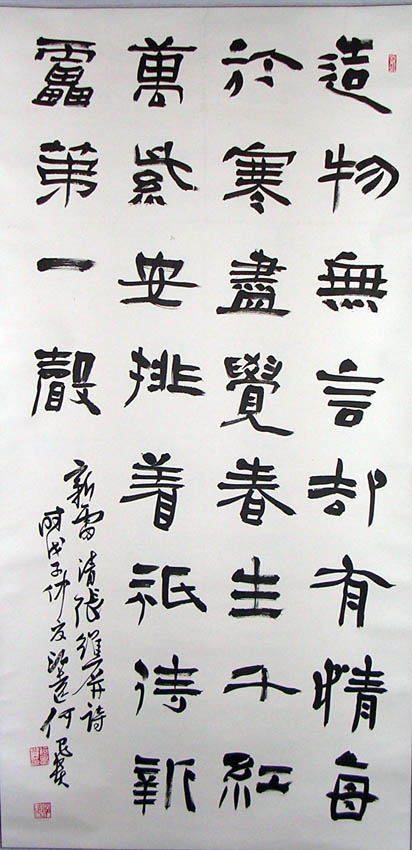 造物無言却有情每
於寒盡覺春生千紅
萬紫安排着祇待新
靁第一聲
新雷清張維屏詩
時戊子仲夏
何